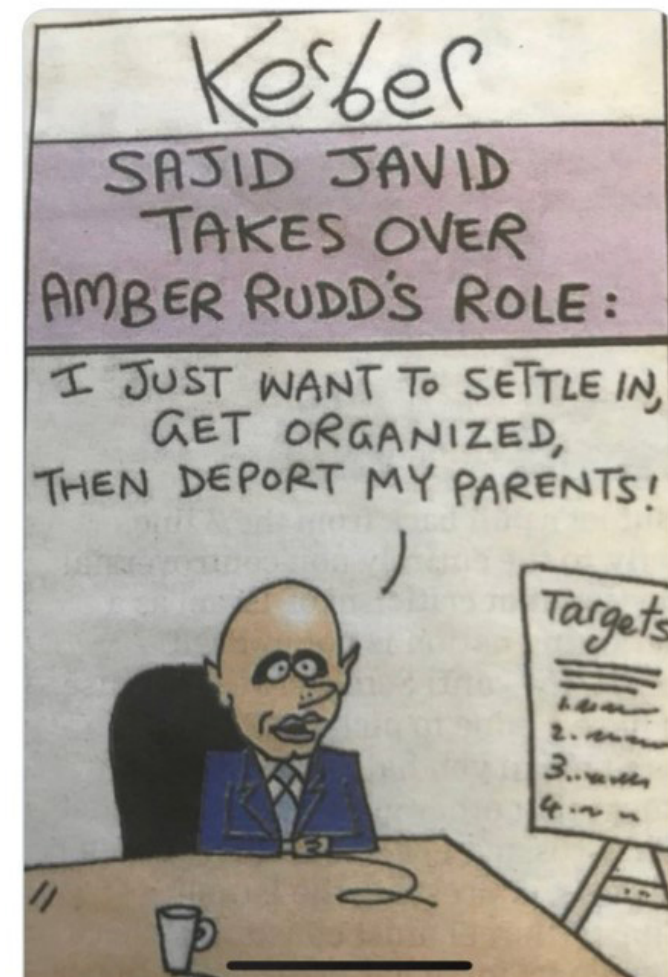 Kerber
SAJID JAVID
TAKES OVER
AMBER RUDD'S ROLE:
I JUST WANT TO SETTLE IN,
GET ORGANIZED,
THEN DEPORT MY PARENTS!
Targets
1.
2.
3.
4.